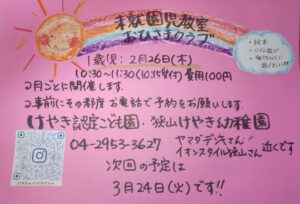 未就園児教室
おひさまクラブ
1歳児：2月26日(木)
10:30～11:30(10:15受付) 費用100円
2月ごとに開催します。
事前にその都度 お電話で予約をお願いします。
けやき認定こども園・狭山けやき幼稚園
04-2953-3627
ヤマダデンキさん
イオンスタイル狭山さん
近くです
次回の予定は
3月24日(火)です!!
・絵本